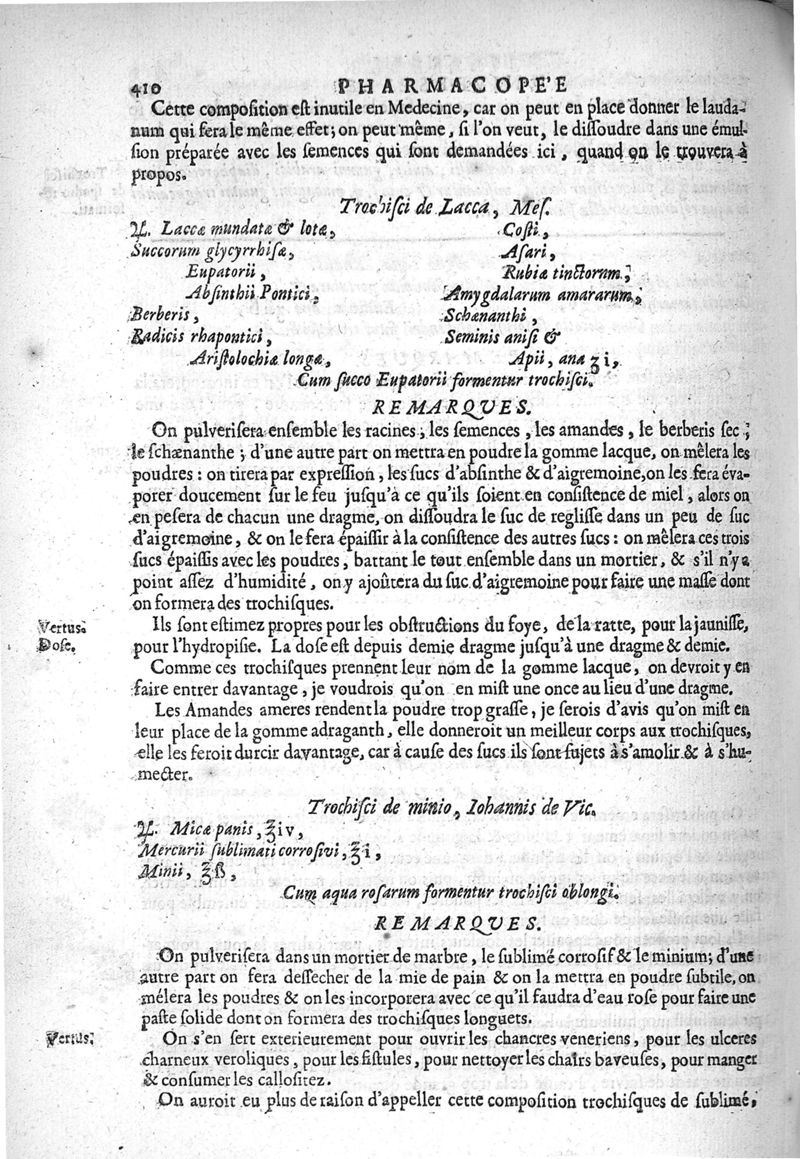 410 PHARMACOPE'E
Cette composition est inutile en Medecine, car on peut en place donner le lauda-
num qui fera le même effet; on peut même, si l'on veut, le dissoudre dans une émul-
sion préparée avec les semences qui sont demandées ici, quand on le trouvera à
propos.
Trochisci de Lacca, Mes.
♃. Laccæ mundatæ & lotæ,
Succorum glycyrrhisæ,
Eupatorii,
Absinthii Pontici,
Berberis,
Radicis rhapontici,
Aristolochiæ longæ,
Costi,
Asari,
Rubiæ tinctorum,
Amygdalarum amararum,
Schænanthi,
Seminis anisi &
Apii, ana ʒi,
Cum succo Eupatorii formentur trochisci.
REMARQUES.
On pulverisera ensemble les racines, les semences, les amandes, le berberis sec,
le schænanthe; d'une autre part on mettra en poudre la gomme lacque, on mêlera les
poudres: on tirera par expression, les sucs d'absinthe & d'aigremoine, on les fera éva-
porer doucement sur le feu jusqu'à ce qu'ils soient en consistence de miel, alors on
en pesera de chacun une dragme, on dissoudra le suc de reglisse dans un peu de suc
d'aigremoine, & on le fera épaissir à la consistence des autres sucs: on mêlera ces trois
sucs épaissis avec les poudres, battant le tout ensemble dans un mortier, & s'il n'y a
point assez d'humidité, on y ajoûtera du suc d'aigremoine pour faire une masse dont
on formera des trochisques.
Vertus. Ils sont estimez propres pour les obstructions du foye, de la ratte, pour la jaunisse,
Dose. pour l'hydropisie. La dose est depuis demie dragme jusqu'à une dragme & demie.
Comme ces trochisques prennent leur nom de la gomme lacque, on devroit y en
faire entrer davantage, je voudrois qu'on en mist une once au lieu d'une dragme.
Les Amandes ameres rendent la poudre trop grasse, je serois d'avis qu'on mist en
leur place de la gomme adraganth, elle donneroit un meilleur corps aux trochisques,
elle les feroit durcir davantage, car à cause des sucs ils sont sujets à s'amolir & à s'hu-
mecter.
Trochisci de minio, Iohannis de Vic.
♃. Micæ panis, ℥iv,
Mercurii sublimati corrosivi, ℥i,
Minii, ℥ß,
Cum aqua rosarum formentur trochisci oblongi.
REMARQUES.
On pulverisera dans un mortier de marbre, le sublimé corrosif & le minium; d'une
autre part on fera dessecher de la mie de pain & on la mettra en poudre subtile, on
mélera les poudres & on les incorporera avec ce qu'il faudra d'eau rose pour faire une
paste solide dont on formera des trochisques longuets.
Vertus. On s'en sert exterieurement pour ouvrir les chancres veneriens, pour les ulceres
charneux veroliques, pour les fistules, pour nettoyer les chairs baveuses, pour manger
& consumer les callositez.
On auroit eu plus de raison d'appeller cette composition trochisques de sublimé,